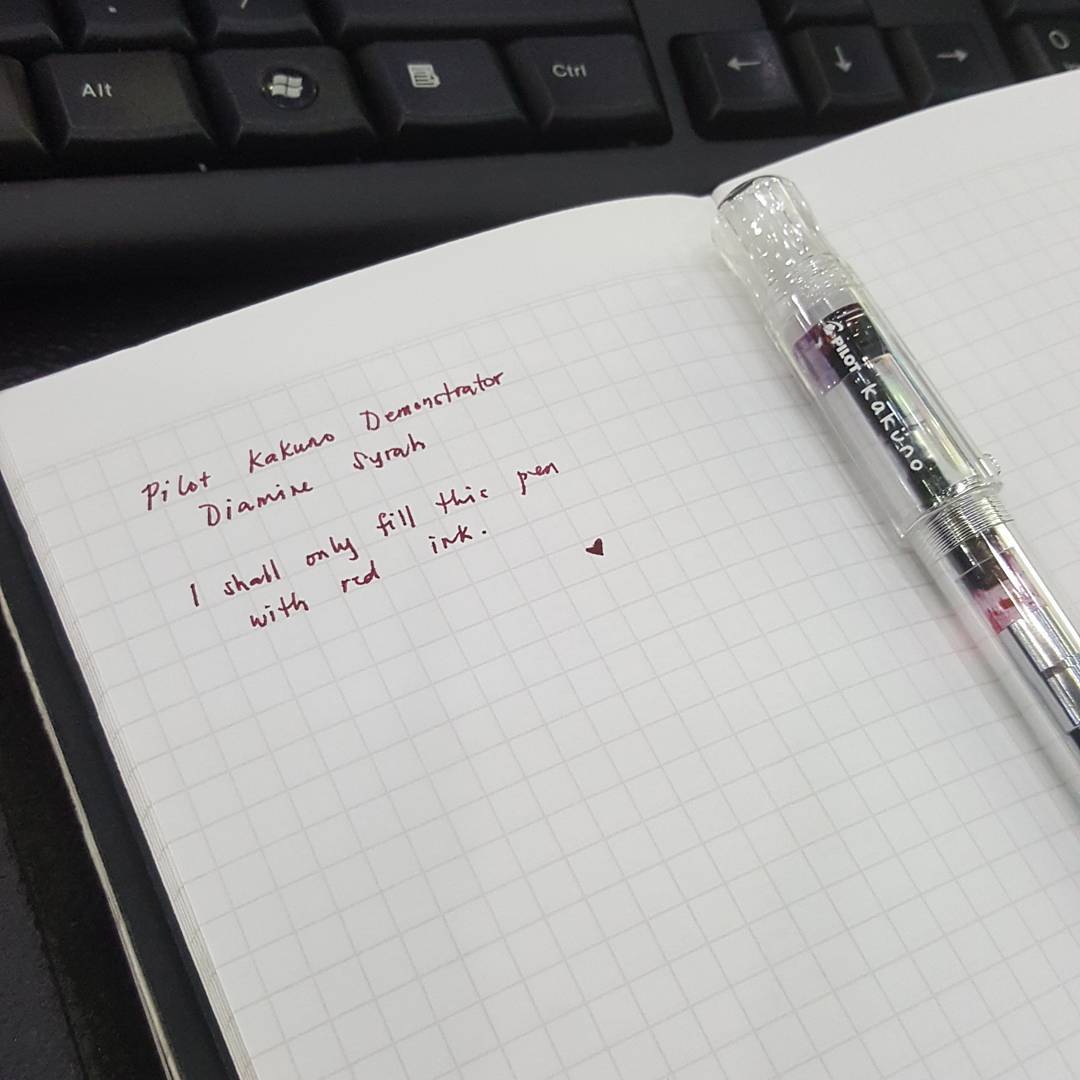 Alt
Ctrl
←
↓
→
0
Pilot Kakuno Demonstrator
Diamine Syrah
I shall only fill this pen
with red ink.
♥
PILOT kaküno